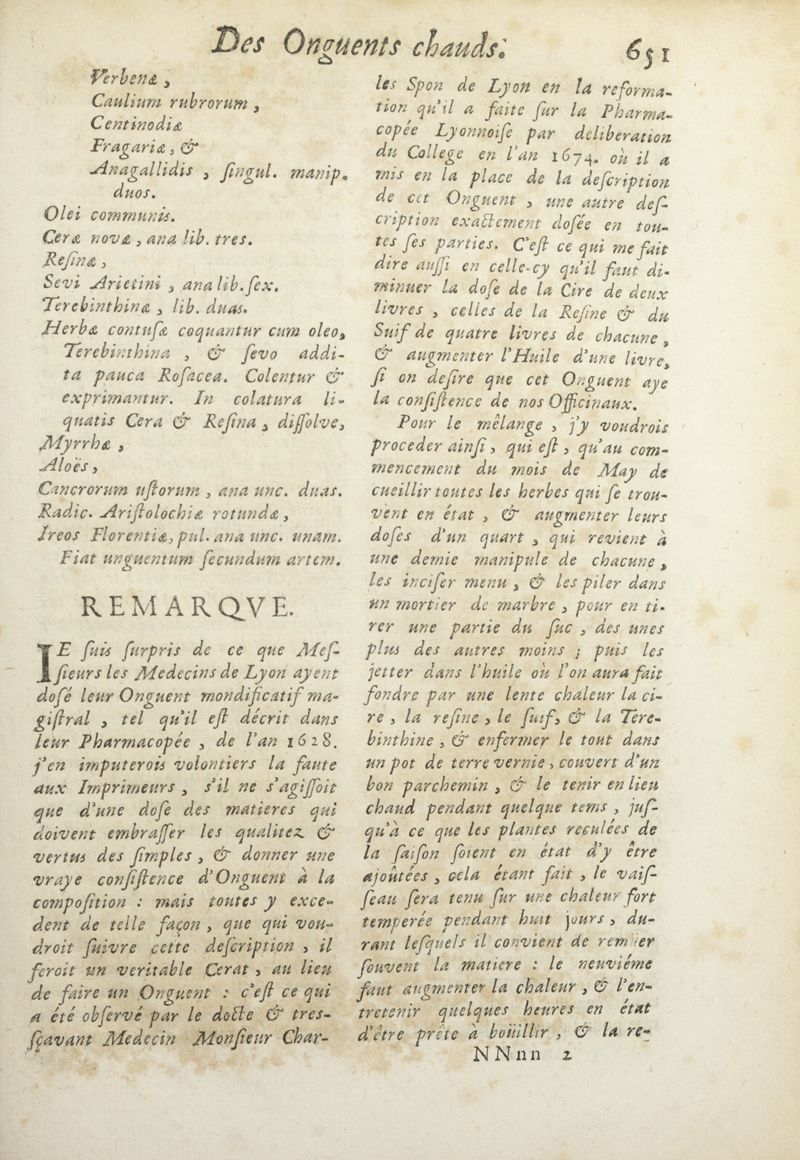 Des Onguents chauds.
651
Verbenæ,
Caulium rubrorum,
Centinodiæ
Fragariæ, &
Anagallidis, ſingul. manip.
duos.
Olei communis.
Ceræ novæ, ana lib. tres.
Reſinæ,
Sevi Arietini, ana lib. ſex.
Terebinthinæ, lib. duas.
Herbæ contuſæ coquantur cum oleo,
Terebinthina, & ſevo addi-
ta pauca Roſacea. Colentur &
exprimantur. In colatura li-
quatis Cera & Reſina, diſſolve,
Myrrhæ,
Aloës,
Cancrorum uſtorum, ana unc. duas.
Radic. Ariſtolochiæ rotundæ,
Ireos Florentiæ, pul. ana unc. unam.
Fiat unguentum ſecundum artem.
REMARQVE.
IE ſuis ſurpris de ce que Meſ-
ſieurs les Medecins de Lyon ayent
doſé leur Onguent mondificatif ma-
giſtral, tel qu'il eſt décrit dans
leur Pharmacopée, de l'an 1628.
j'en imputerois volontiers la faute
aux Imprimeurs, s'il ne s'agiſſoit
que d'une doſe des matieres qui
doivent embraſſer les qualitez &
vertus des ſimples, & donner une
vraye conſiſtence d'Onguent à la
compoſition : mais toutes y exce-
dent de telle façon, que qui vou-
droit ſuivre cette deſcription, il
feroit un veritable Cerat, au lieu
de faire un Onguent : c'eſt ce qui
a été obſervé par le docte & tres-
ſçavant Medecin Monſieur Char-
les Spon de Lyon en la reforma-
tion qu'il a faite ſur la Pharma-
copée Lyonnoiſe par deliberation
du College en l'an 1674. où il a
mis en la place de la deſcription
de cet Onguent, une autre deſ-
cription exactement doſée en tou-
tes ſes parties. C'eſt ce qui me fait
dire auſſi en celle-cy qu'il faut di-
minuer la doſe de la Cire de deux
livres, celles de la Reſine & du
Suif de quatre livres de chacune,
& augmenter l'Huile d'une livre,
ſi on deſire que cet Onguent aye
la conſiſtence de nos Officinaux.
Pour le mêlange, j'y voudrois
proceder ainſi, qui eſt, qu'au com-
mencement du mois de May de
cueillir toutes les herbes qui ſe trou-
vent en état, & augmenter leurs
doſes d'un quart, qui revient à
une demie manipule de chacune,
les inciſer menu, & les piler dans
un mortier de marbre, pour en ti-
rer une partie du ſuc, des unes
plus des autres moins ; puis les
jetter dans l'huile où l'on aura fait
fondre par une lente chaleur la ci-
re, la reſine, le ſuif, & la Tere-
binthine, & enfermer le tout dans
un pot de terre vernie, couvert d'un
bon parchemin, & le tenir en lieu
chaud pendant quelque tems, juſ-
qu'à ce que les plantes reculées de
la ſaiſon ſoient en état d'y être
ajoûtées, cela étant fait, le vaiſ-
ſeau ſera tenu ſur une chaleur fort
temperée pendant huit jours, du-
rant leſquels il convient de remuer
ſouvent la matiere : le neuviéme
faut augmenter la chaleur, & l'en-
tretenir quelques heures en état
d'être prête à boüillir, & la re-
NNnn 2